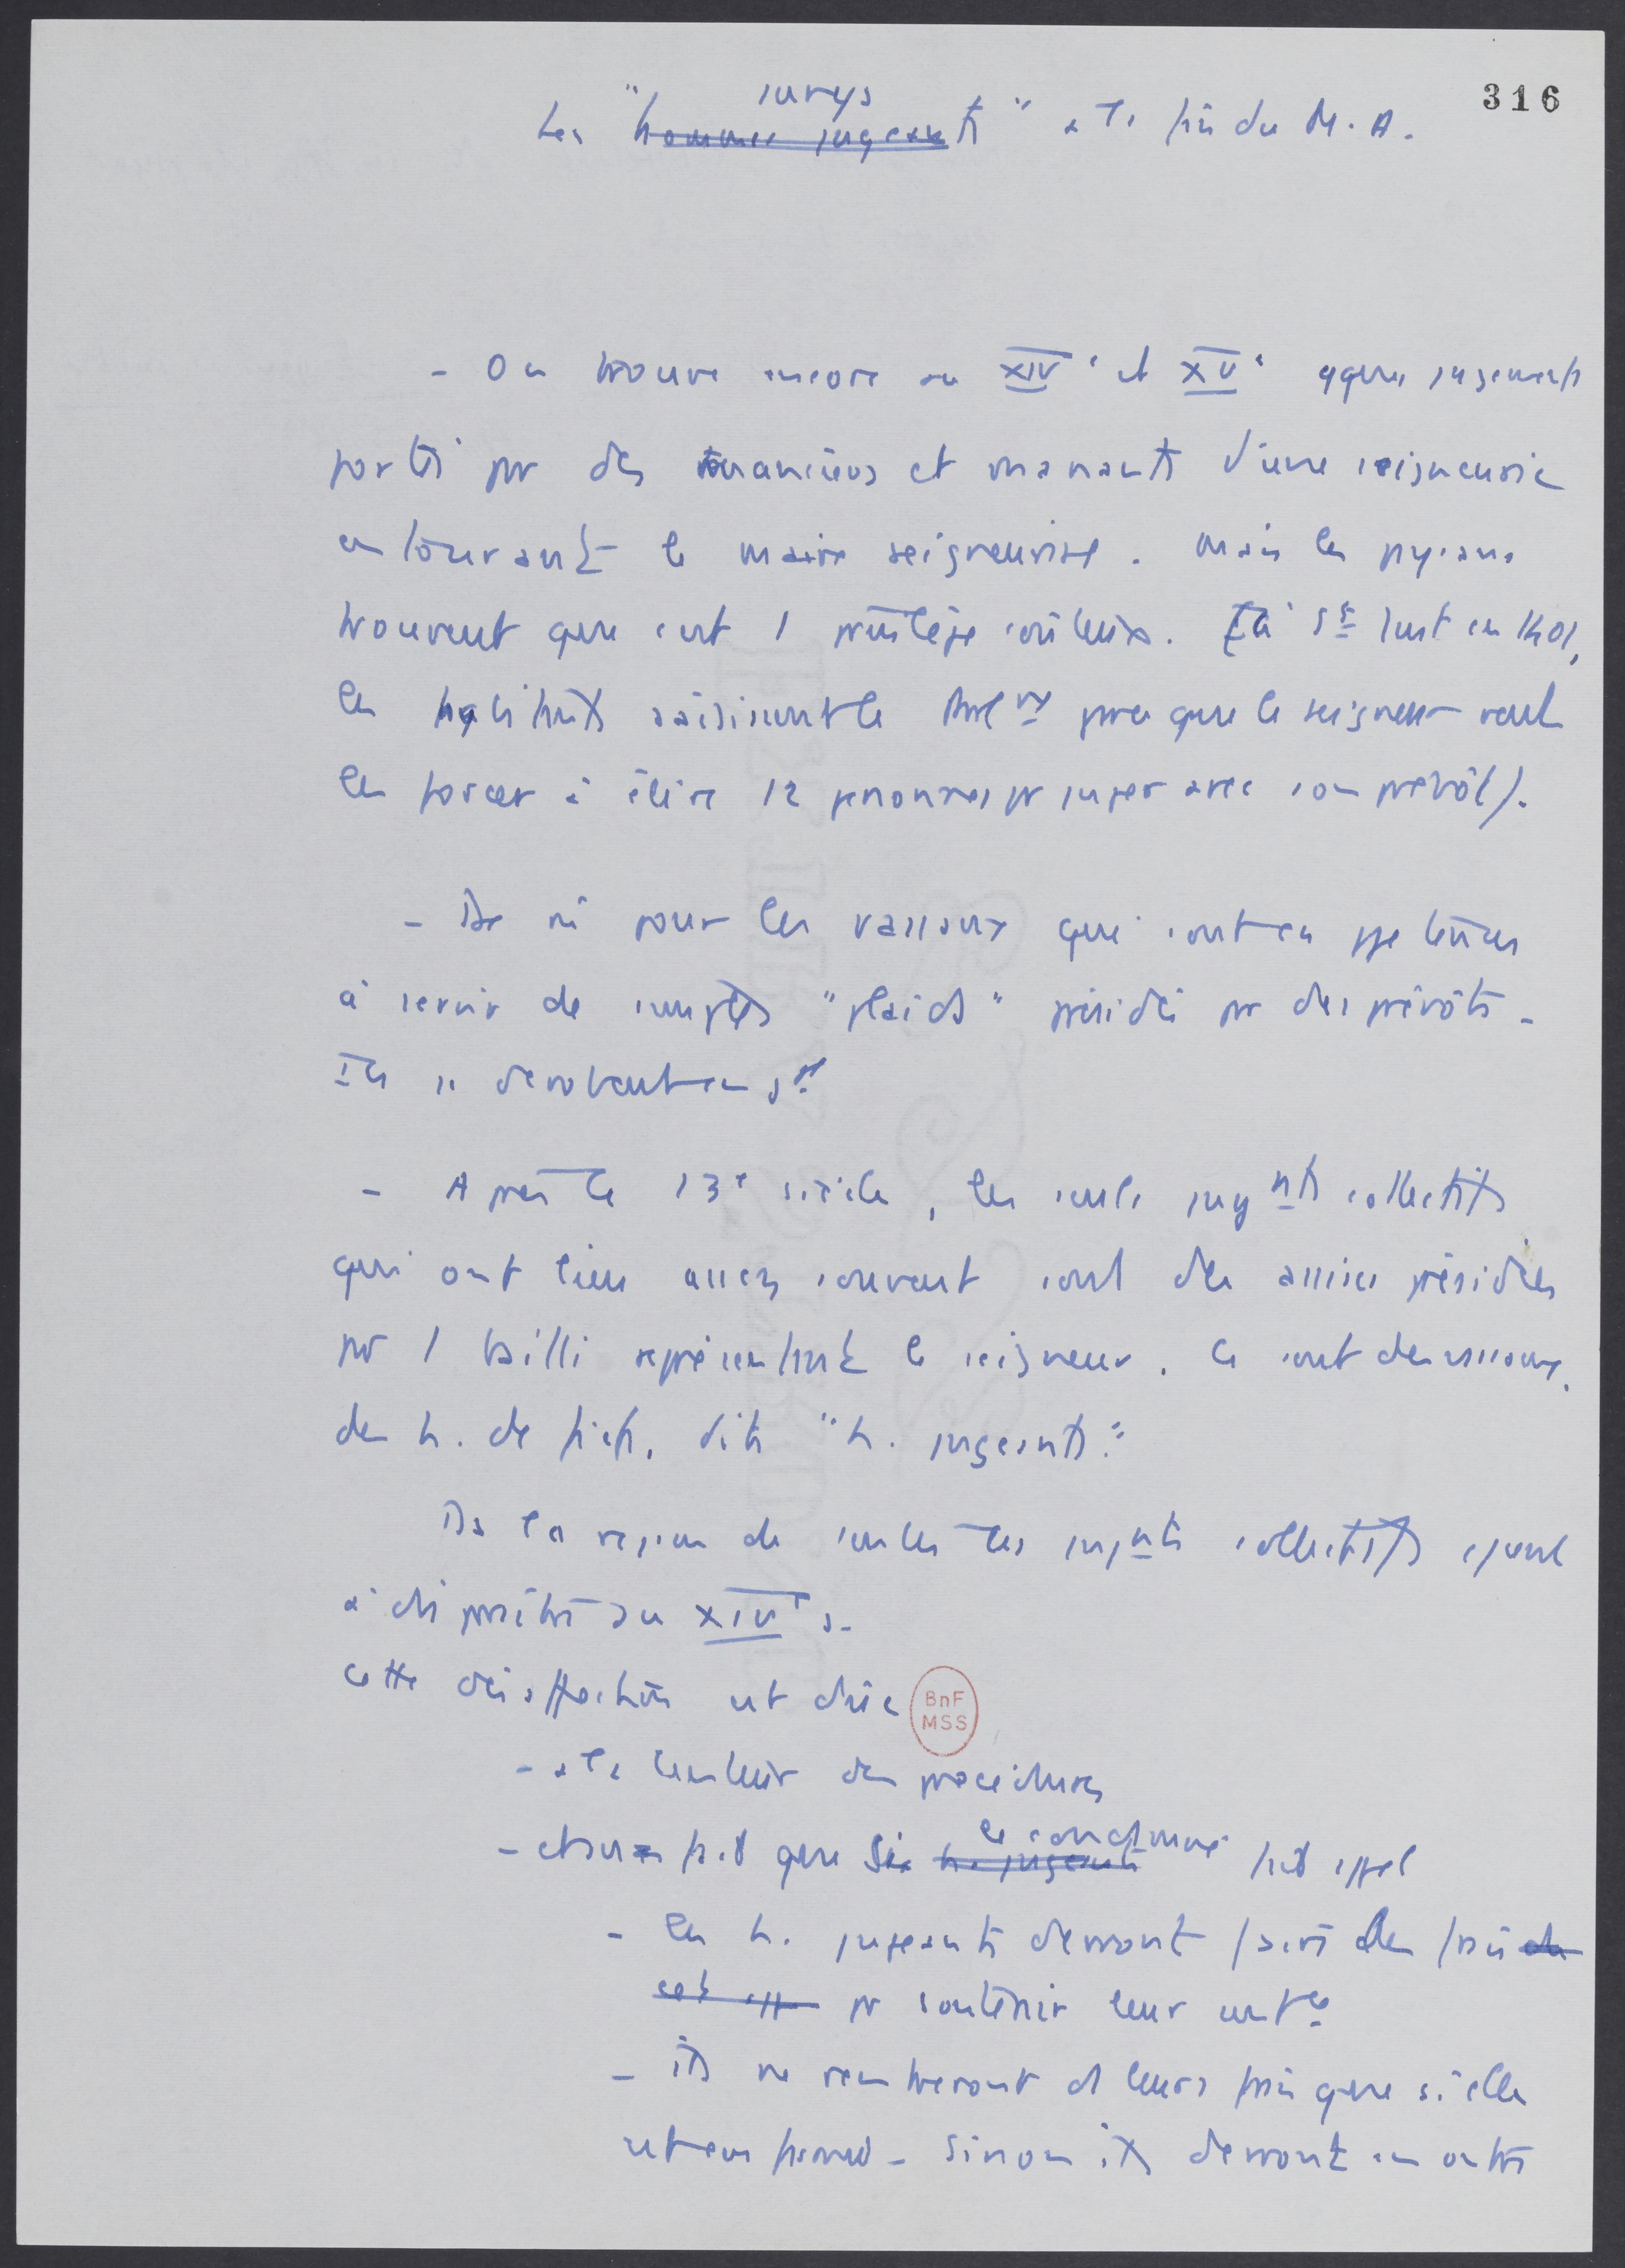 316
jurys
Les "hommes jugeants" à la fin du M. A.
- On trouve encore au XIV e et XV e qques jugements
portés pr des tenanciers et manants d'une seigneurie
entourant le maire seigneurial. Mais les paysans
trouvent que c'est 1 privilège coûteux. [à St Just en 1401,
les habitants saisissent le Parlt parce que le seigneur veut
les forcer à élire 12 personnes pr juger avec son prévôt).
- De m pour les vassaux qui sont en ppe tenus
à servir de simples "plaids" présidés pr des prévôts.
Ils se dérobent en gal
- Après le 13e siècle, les seuls jugnts collectifs
qui ont lieu assez souvent sont des assises présidées
par 1 bailli représentant le seigneur. Ce sont des vassaux,
des h. de fiefs, dits "h. jugeants".
Ds la région de les jugnts collectifs
disparaître au XIV e s.
Cette désaffection est due
- à la lenteur des procédures
- et au fait que si les h. jugeants le condamné fait appel
- les h. jugeants devront faire des frais de
cet app pr soutenir leur sentce
- ils ne rentreront ds leurs frais que si elle
est confirmée - sinon ils devront en outre
BnF
MSS